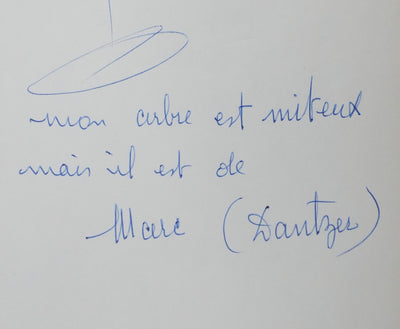 mon arbre est miteux
mais il est de
Marc (Dantzer)